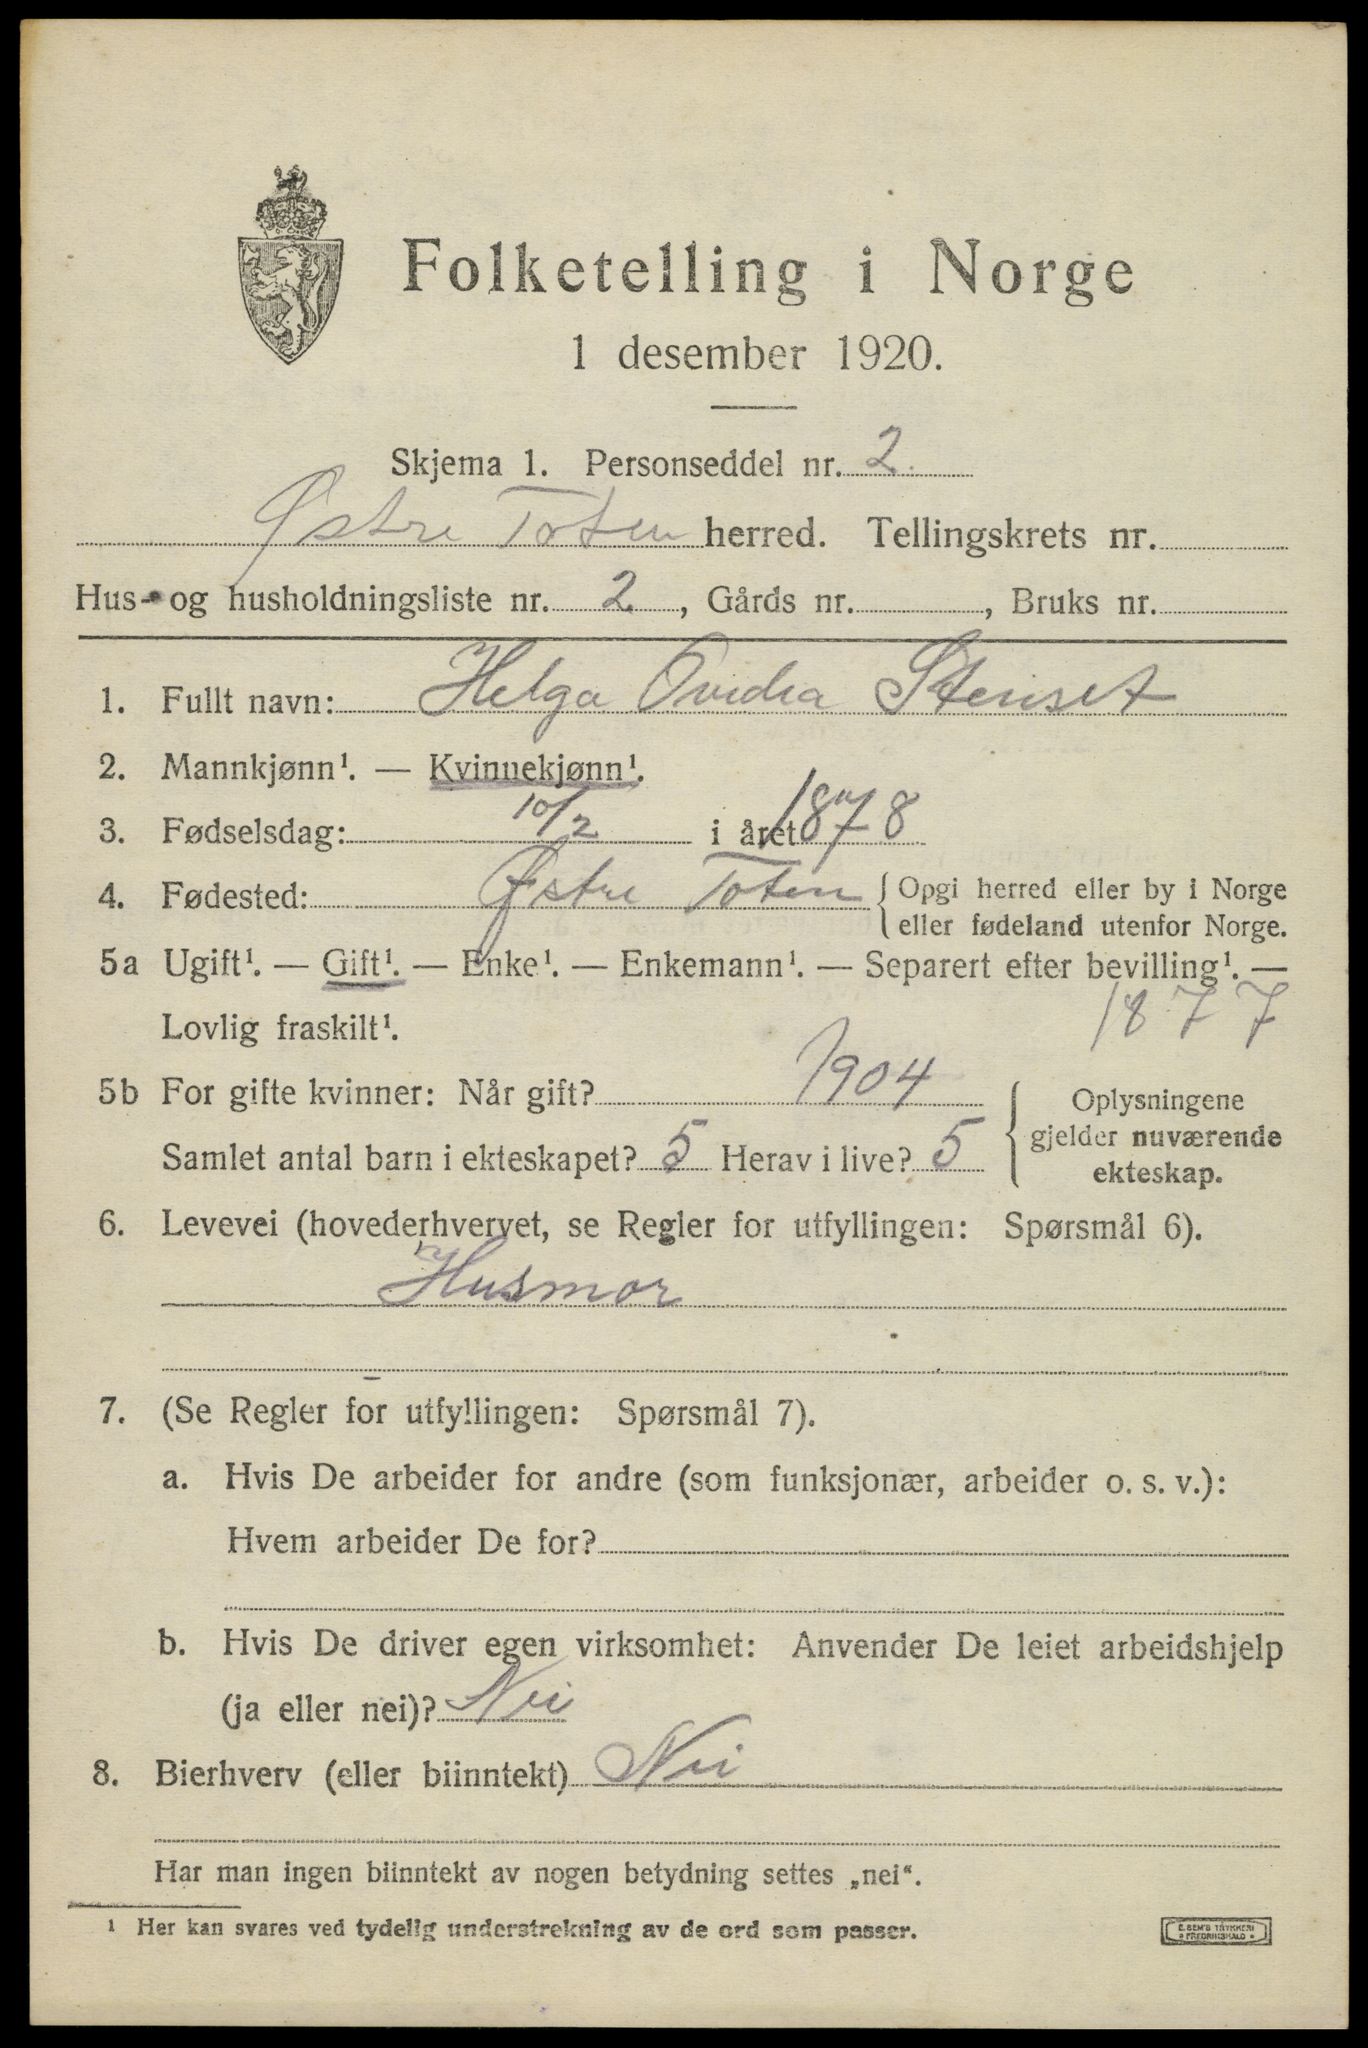 Folketelling i Norge
1 desember 1920.
Skjema 1. Personseddel nr. 2.
Østre Toten herred. Tellingskrets nr.
Hus- og husholdningsliste nr. 2, Gårds nr. , Bruks nr.
1. Fullt navn: Helga Ovidia Stenset
2. Mannkjønn¹. — Kvinnekjønn¹.
3. Fødselsdag: 10/2 i året 1878
4. Fødested: Østre Toten { Opgi herred eller by i Norge
eller fødeland utenfor Norge.
5a Ugift¹. — Gift¹. — Enke¹. — Enkemann¹. — Separert efter bevilling¹. —
Lovlig fraskilt¹. 1877
5b For gifte kvinner: Når gift? 1904
Samlet antal barn i ekteskapet? 5 Herav i live? 5
Oplysningene
gjelder nuværende
ekteskap.
6. Levevei (hovederhvervet, se Regler for utfyllingen: Spørsmål 6).
Husmor
7. (Se Regler for utfyllingen: Spørsmål 7).
a. Hvis De arbeider for andre (som funksjonær, arbeider o. s. v.):
Hvem arbeider De for?
b. Hvis De driver egen virksomhet: Anvender De leiet arbeidshjelp
(ja eller nei)? Nei
8. Bierhverv (eller biinntekt) Nei
Har man ingen biinntekt av nogen betydning settes „nei“.
¹ Her kan svares ved tydelig understrekning av de ord som passer.
E. SEM'S TRYKKERI
FREDRIKSHALD